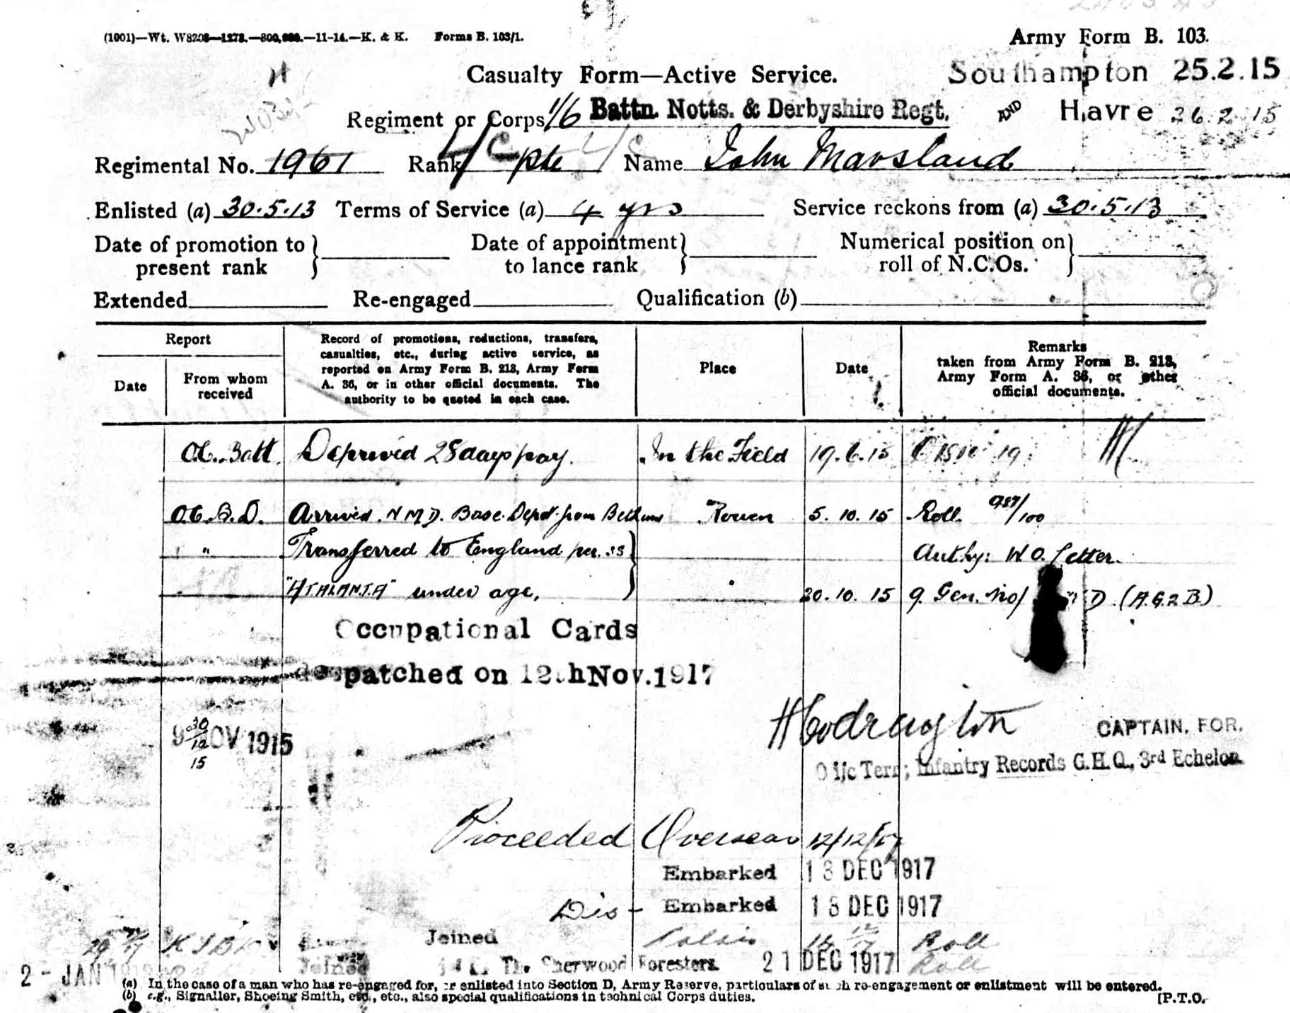 (1001)—Wt. W8208—1273.—800,000.—11-14.—K. & K. Forms B. 103/1.
Army Form B. 103.
H
Casualty Form—Active Service.
Southampton 25.2.15
AND Havre 26.2.15
Regiment or Corps 1/6 Battn. Notts. & Derbyshire Regt.
Regimental No. 1961 Rank Pte Name John Marsland
Enlisted (a) 30.5.13 Terms of Service (a) 4 yrs Service reckons from (a) 30.5.13
Date of promotion to present rank
Date of appointment to lance rank
Numerical position on roll of N.C.Os.
Extended Re-engaged Qualification (b)
Report
Date
From whom received
Record of promotions, reductions, transfers, casualties, etc., during active service, as reported on Army Form B. 213, Army Form A. 36, or in other official documents. The authority to be quoted in each case.
Place
Date
Remarks
taken from Army Form B. 213, Army Form A. 36, or other official documents.
O.C. Batt. Deprived 28 days pay. In the Field 19.6.15
O.C. B.D. Arrived N.M.D. Base Depot from Rouen 5.10.15 Roll
" Transferred to England per SS Authy: W.O. Letter.
"ATHLANTA" under age. " 20.10.15 9. Gen. No/ D (A.G.2B)
Occupational Cards
despatched on 12th Nov. 1917
9 NOV 1915
30/12/15
H Codrington CAPTAIN, FOR.
O i/c Terr; Infantry Records G.H.Q., 3rd Echelon
Proceeded Overseas 12/12/17
Embarked 13 DEC 1917
Dis- Embarked 13 DEC 1917
Joined Calais Roll
Joined The Sherwood Foresters 21 DEC 1917 Roll
2 - JAN
(a) In the case of a man who has re-engaged for, or enlisted into Section D, Army Reserve, particulars of such re-engagement or enlistment will be entered.
(b) e.g., Signaller, Shoeing Smith, etc., etc., also special qualifications in technical Corps duties. [P.T.O.